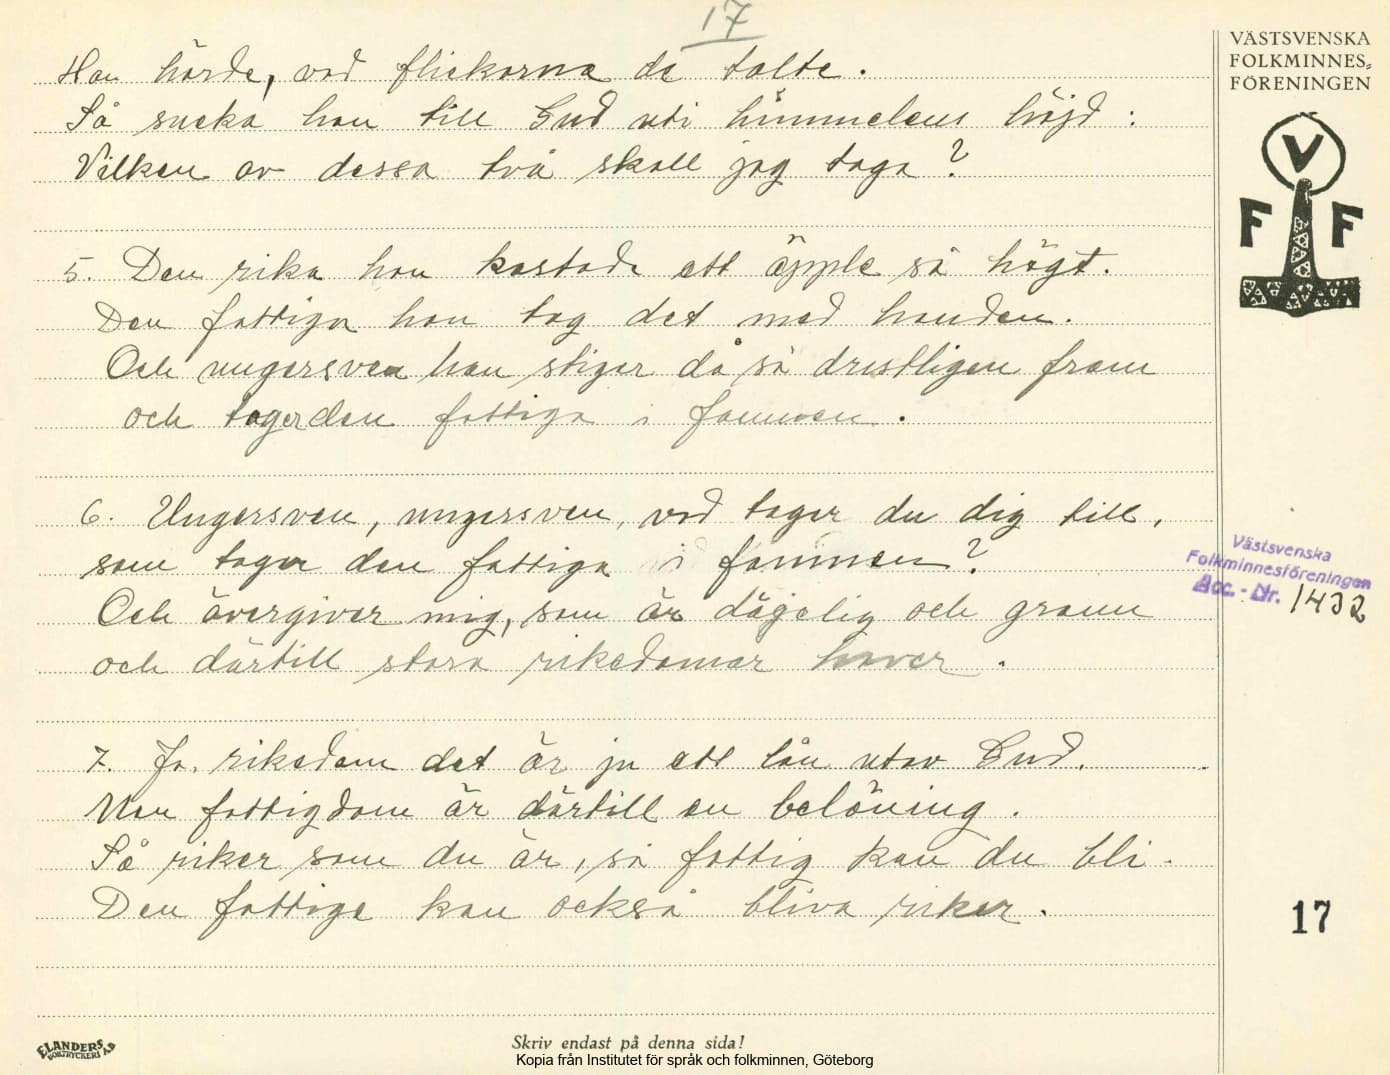 17
VÄSTSVENSKA
FOLKMINNES=
FÖRENINGEN
V
F F
Han hörde, vad flickorna de talte.
Så sucka han till Gud uti himmelens höjd:
Vilken av dessa två skall jag taga?
5. Den rika hon kastade ett äpple så högt.
Den fattiga hon tog det med handen.
Och ungersven han stiger då så dristligen fram
och tager den fattiga i famnen.
6. Ungersven, ungersven, vad tager du dig till,
som tager den fattiga i famnen?
Och övergiver mig, som är dägelig och grann
och därtill stora rikedomar haver.
Västsvenska
Folkminnesföreningen
Acc. - Nr. 1432
7. Ja, rikedom det är ju ett lån utav Gud.
Men fattigdom är därtill en belöning.
Så riker som du är, så fattig kan du bli.
Den fattige kan också bliva riker.
17
ELANDERS
BOKTRYCKERI A.B
Skriv endast på denna sida!
Kopia från Institutet för språk och folkminnen, Göteborg